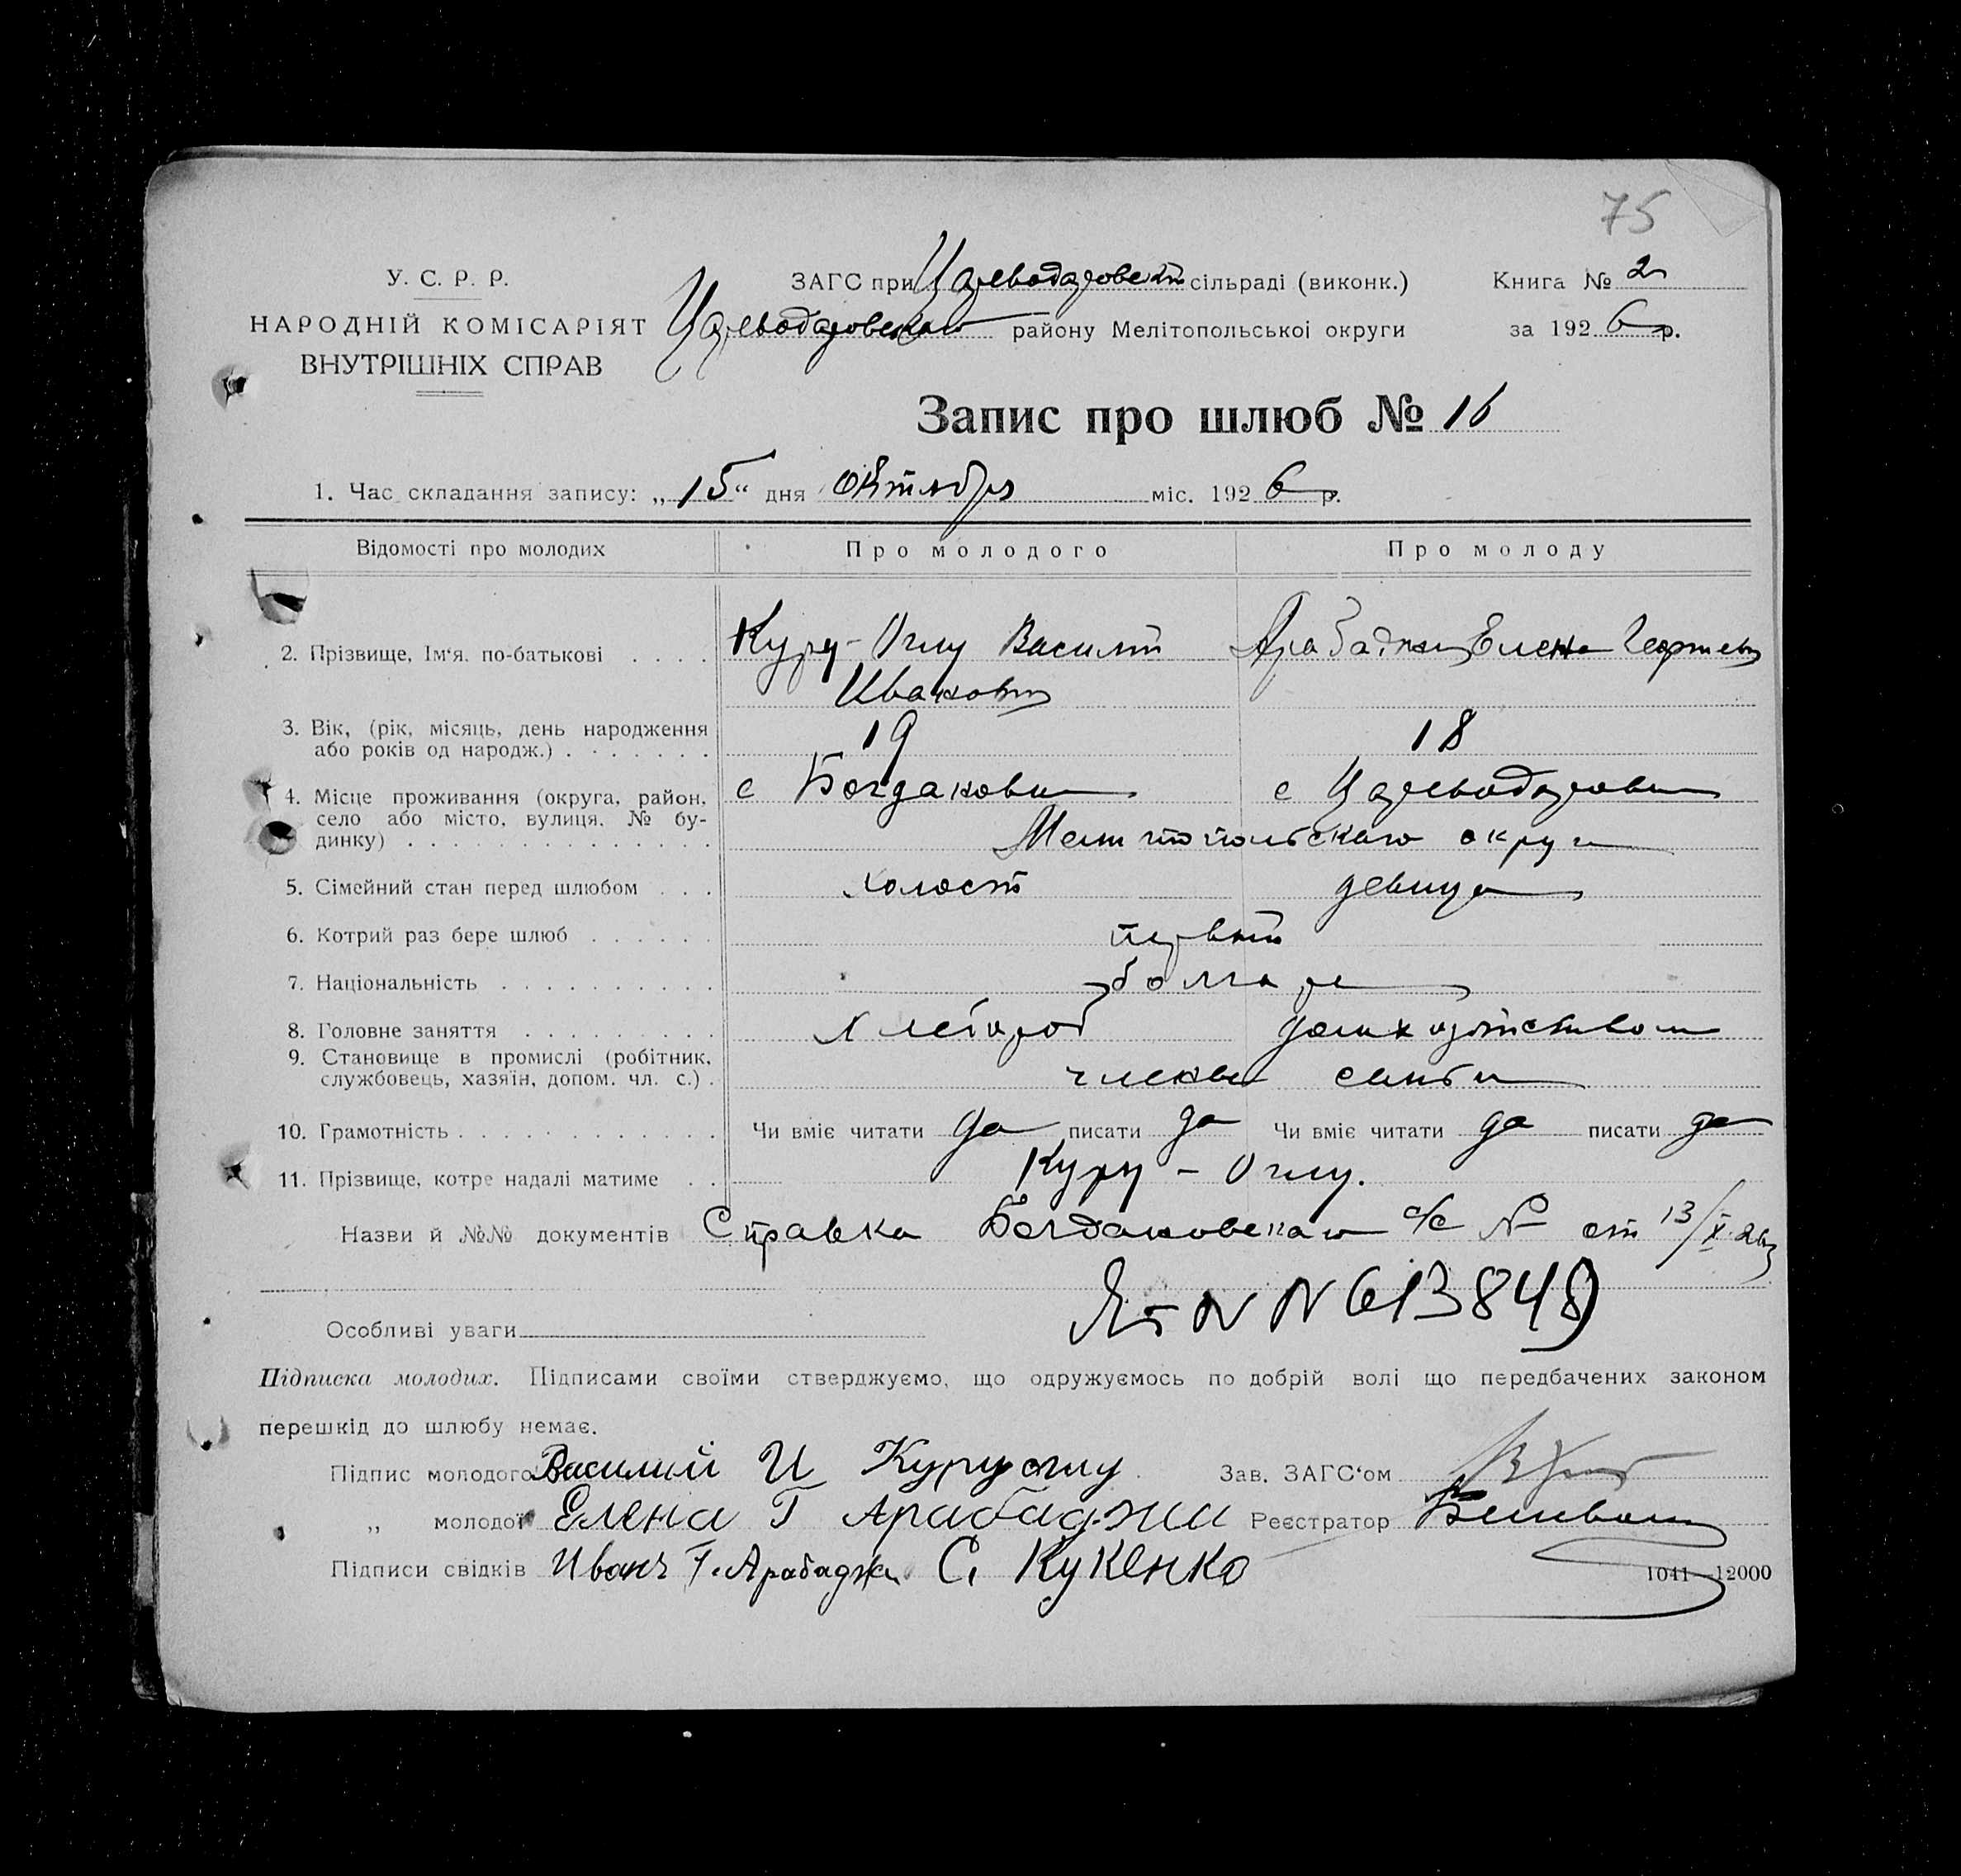 75
У. С. Р. Р.
НАРОДНІЙ КОМІСАРІЯТ
ВНУТРІШНІХ СПРАВ
ЗАГС при Цареводаровской сільраді (виконк.)
Цареводаровского району Мелітопольської округи
Книга № 2
за 1926 р.
Запис про шлюб № 16
1. Час складання запису: „15“ дня Октября міс. 1926 р.
Відомості про молодих Про молодого Про молоду
2. Прізвище, Ім'я, по-батькові . . . . Куру-Оглу Василий Арабаджи Елена Георгиевн
Иванович
3. Вік, (рік, місяць, день народження
або років од народж.) . . . . . . . 19 18
4. Місце проживання (округа, район, с Богдановки с Цареводаровки
село або місто, вулиця, № бу-
динку) . . . . . . . . . . . . . . Мелитопольского округа
5. Сімейний стан перед шлюбом . . . холост девица
6. Котрий раз бере шлюб . . . . . . первый
7. Національність . . . . . . . . . . болгаре
8. Головне заняття . . . . . . . . . хлебороб домхозяйством
9. Становище в промислі (робітник,
службовець, хазяїн, допом. чл. с.) . члены семьи
10. Грамотність . . . . . . . . . . . . Чи вміє читати да писати да Чи вміє читати да писати да
11. Прізвище, котре надалі матиме . . Куру - Оглу.
Назви й №№ документів Справка Богдановского с/с № от 13/X 26
N 613848
Особливі уваги
Підписка молодих. Підписами своїми стверджуємо, що одружуємось по добрій волі що передбачених законом
перешкід до шлюбу немає.
Підпис молодого Василий И Куруоглу Зав. ЗАГС'ом
„ молодої Елена Г Арабаджи Реєстратор
Підписи свідків Иванъ Г. Арабаджи С. Кукенко
1041—12000